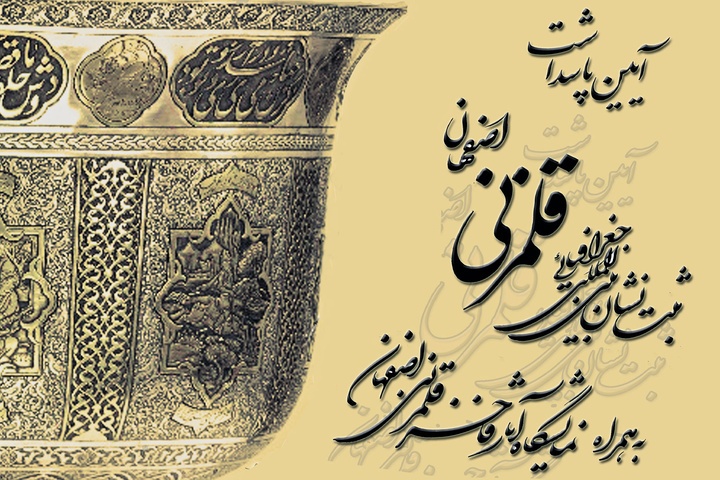 آیین پاسداشت
ثبت نشان بین المللی جغرافیایی
قلمزنی اصفهان
به همراه نمایشگاه آثار فاخر قلمزنی اصفهان